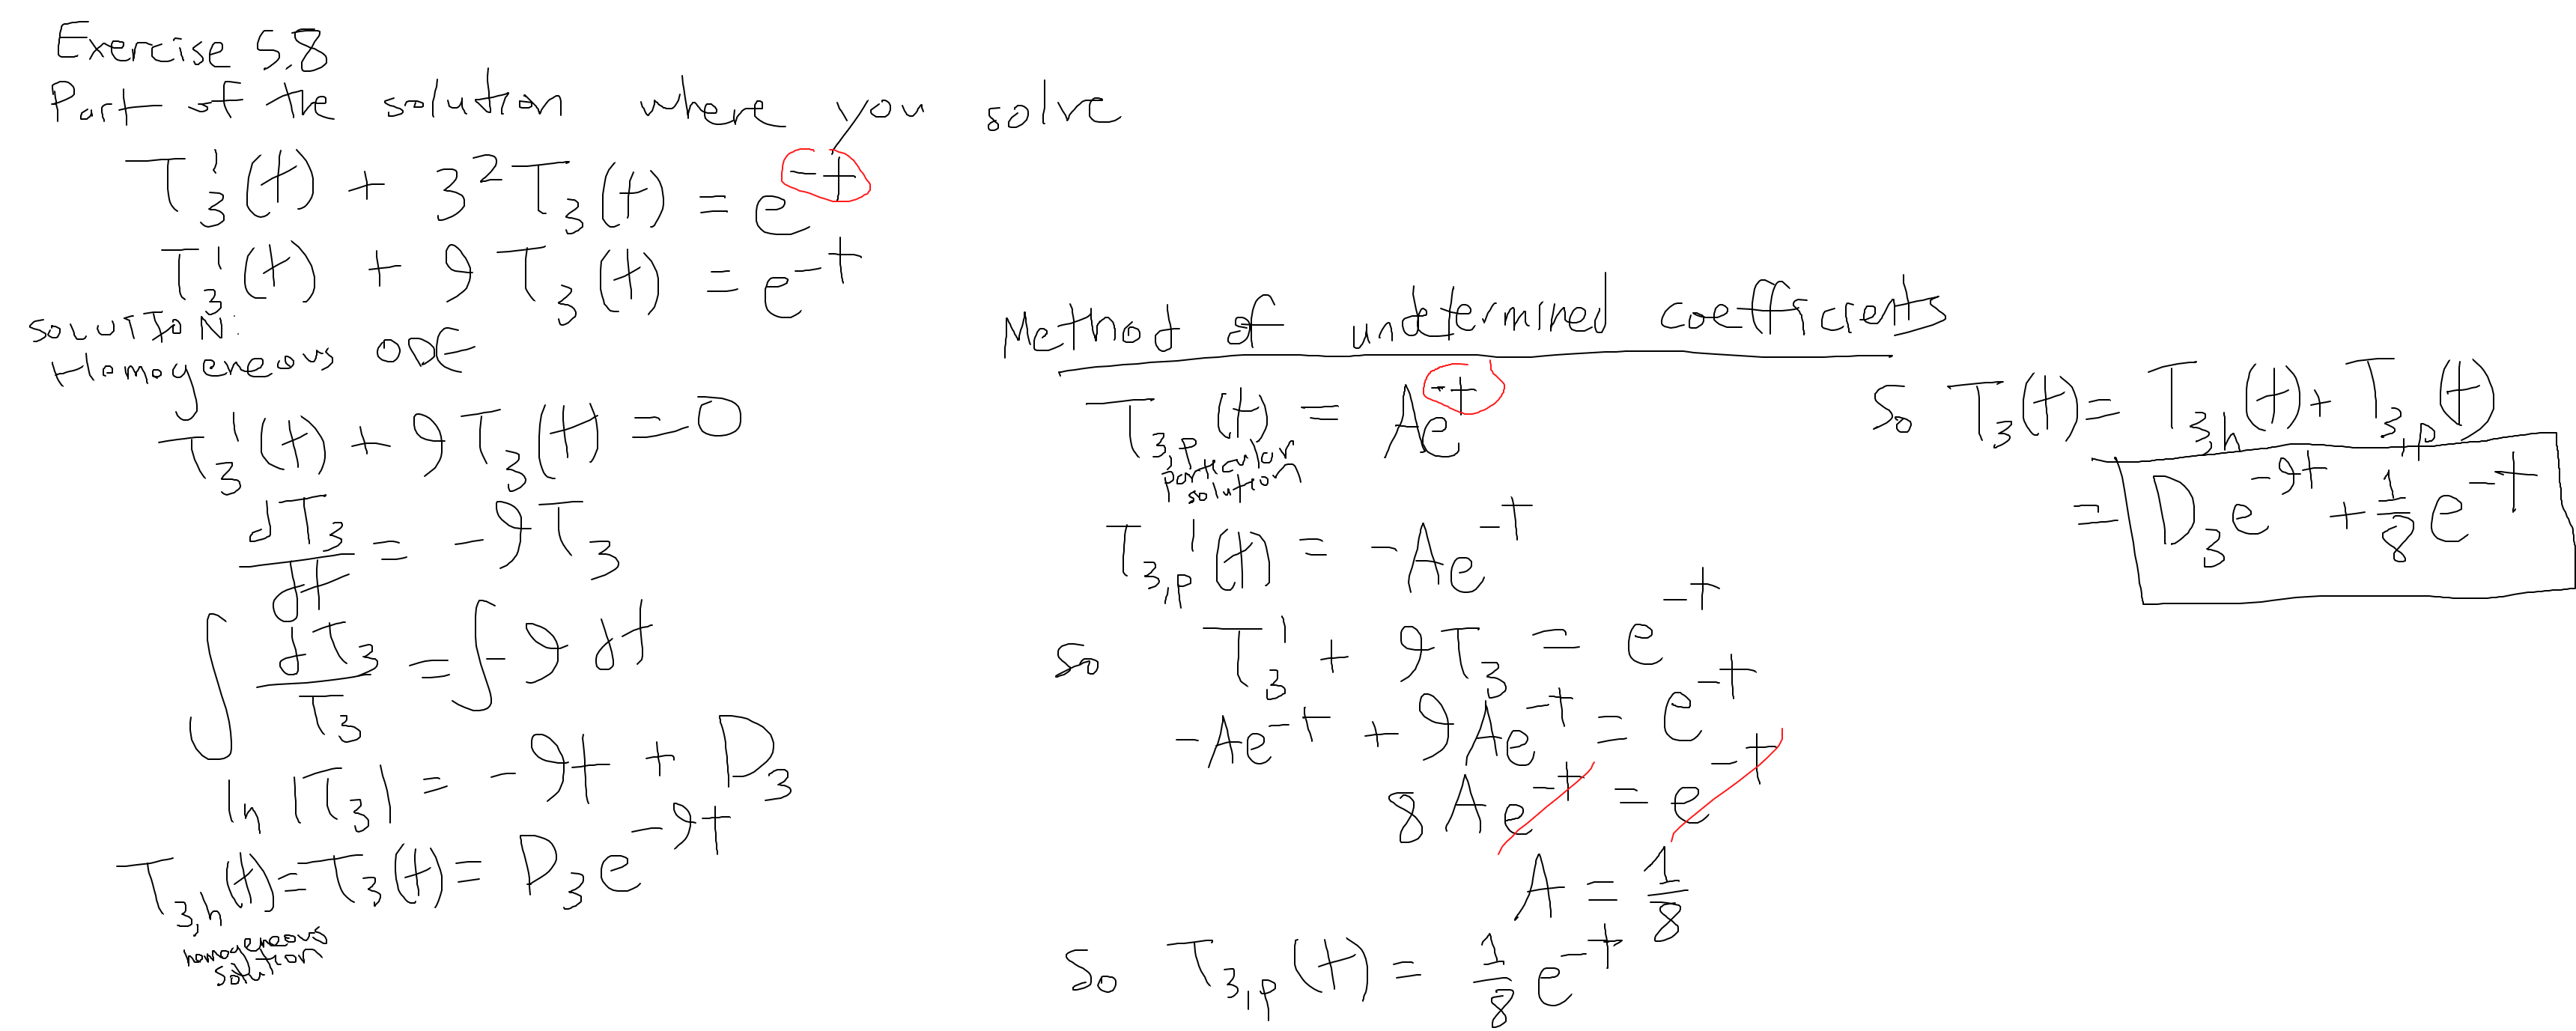 Exercise 5.8
Part of the solution where you solve
T₃'(t) + 3²T₃(t) = e^{-t}
T₃'(t) + 9T₃(t) = e^{-t}
SOLUTION:
Homogeneous ODE
T₃'(t) + 9T₃(t) = 0
dT₃/dt = -9T₃
∫ dT₃/T₃ = ∫-9 dt
ln |T₃| = -9t + D₃
T_{3,h}(t) = T₃(t) = D₃e^{-9t}
homogeneous
solution
Method of undetermined coefficients
T_{3,p}(t) = Ae^{-t}
particular
solution
T_{3,p}'(t) = -Ae^{-t}
so T₃' + 9T₃ = e^{-t}
-Ae^{-t} + 9Ae^{-t} = e^{-t}
8Ae^{-t} = e^{-t}
A = 1/8
So T_{3,p}(t) = 1/8 e^{-t}
So T₃(t) = T_{3,h}(t) + T_{3,p}(t)
= D₃e^{-9t} + 1/8 e^{-t}